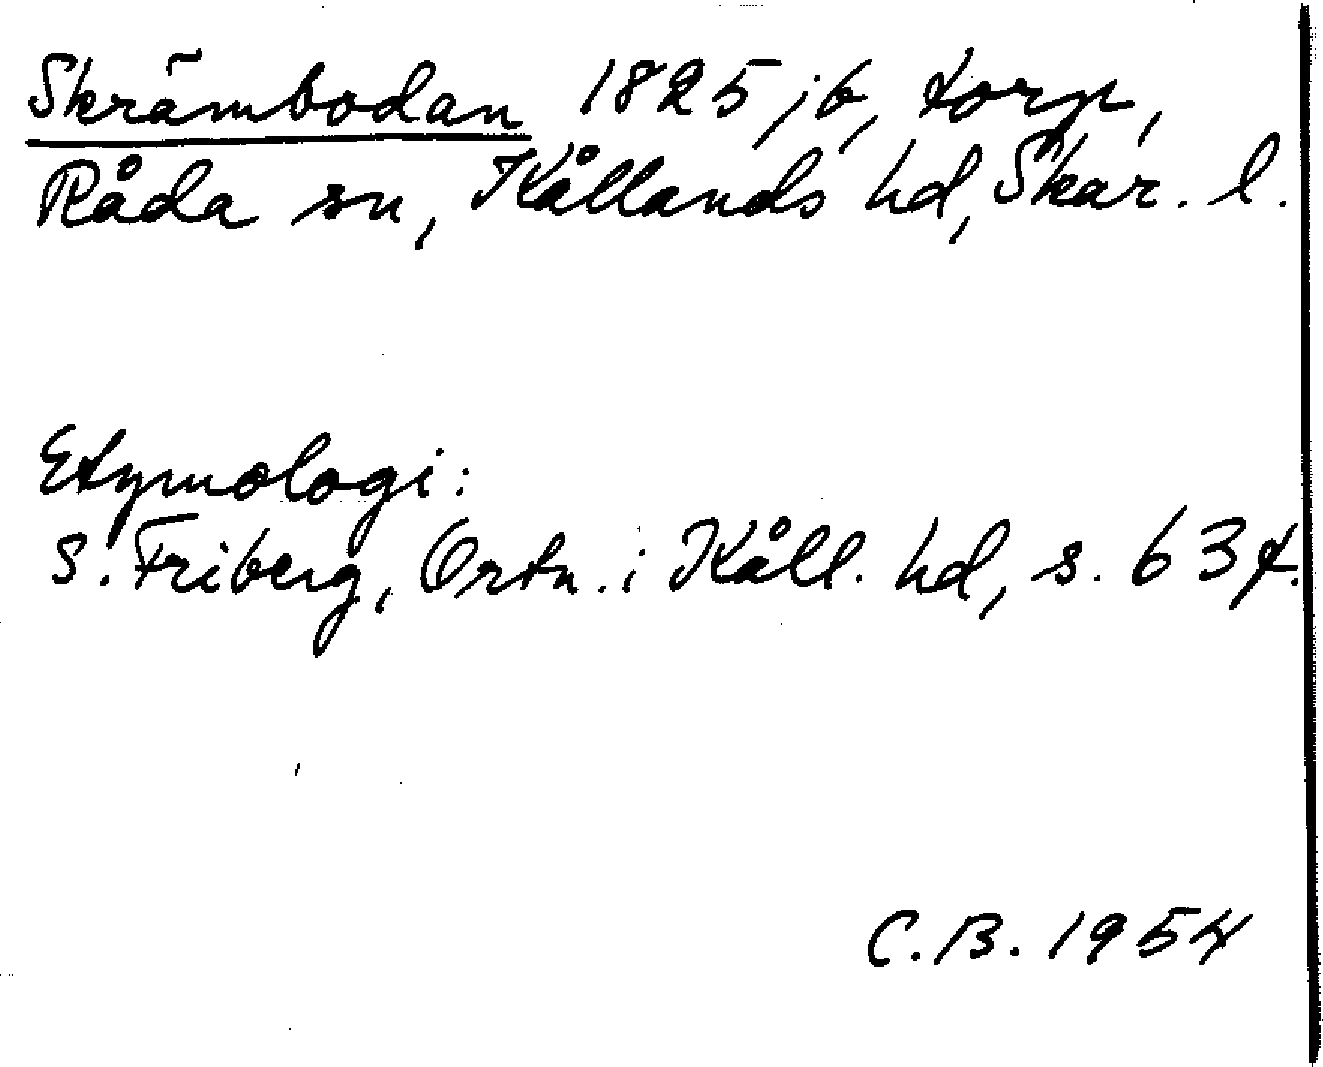 Skrämbodan 1825 jb, torp,
Råda sn, Kållands hd, Skar. l.
Etymologi:
S. Friberg, Ortn. i Kåll. hd, s. 63 f.
C.B. 1954